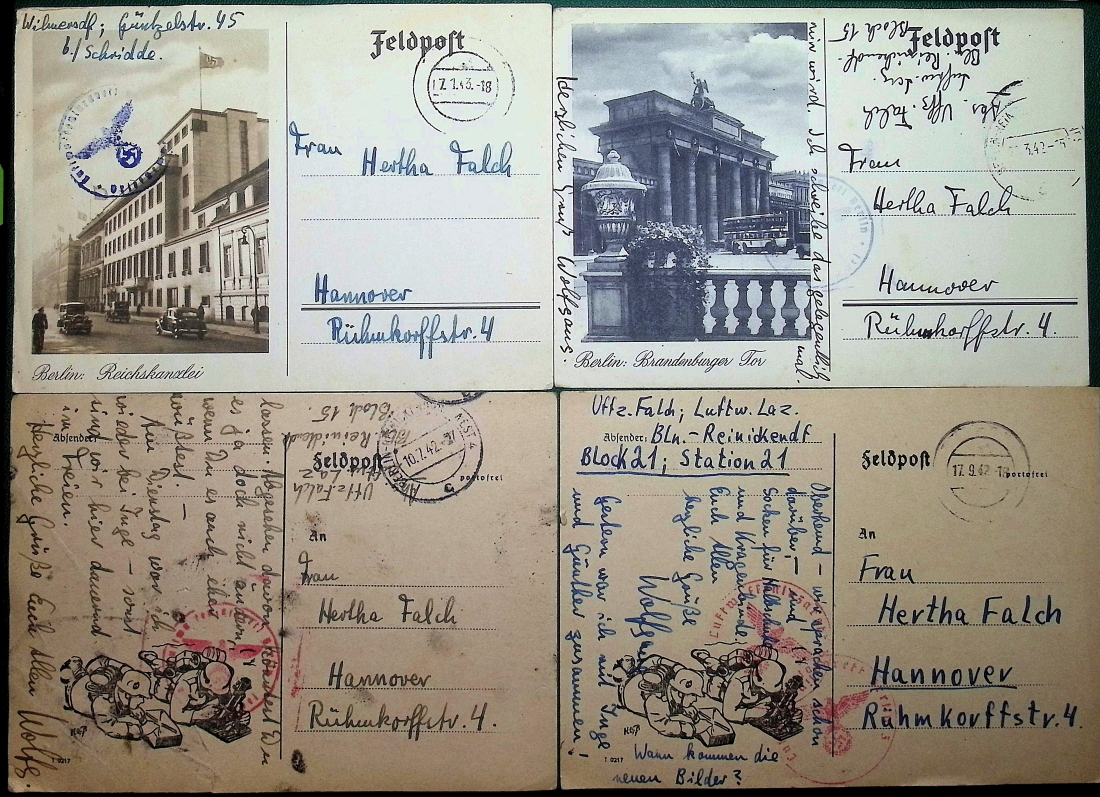 Wilmersdf; Güntzelstr. 45
b/ Schridde.
Feldpost
7.1.43.-18
Frau
Hertha Falch
Hannover
Rühmkorffstr. 4
Berlin: Reichskanzlei
mir wird. Ich schreibe das gelegentlich
mal.
Herzlichen Gruß Wolfgang.
Feldpost
Abs. Uffz. Falch
Luftw. Laz.
Bln. Reinickendf.
Block 15
3.42
Frau
Hertha Falch
Hannover
Rühmkorffstr. 4.
Berlin: Brandenburger Tor
lassen. Abgesehen davon, könntest Du
es ja doch nicht ändern,
wenn Du es auch eher
wüßtest. –
Am Dienstag war ich
wieder bei Inge – sonst
sind wir hier dauernd
im Freien.
Herzliche Grüße Euch allen
Wolfg.
Absender:
Uffz. Falch
Bln. Reinickendf.
Block 15.
Feldpost
portofrei
10.7.42
An
Frau
Hertha Falch
Hannover
Rühmkorffstr. 4.
T 0217
Uffz. Falch; Luftw. Laz.
Absender: Bln.-Reinickendf
Block 21; Station 21
Feldpost
portofrei
17.9.42
An
Frau
Hertha Falch
Hannover
Rühmkorffstr. 4.
Oberhemd – wir sprachen schon
darüber, – und
Socken für Halbschuhe
und Kragenbinde
Euch allen
herzliche Grüße
Wolfgang
Gestern war ich mit Inge
und Günther zusammen!
Wann kommen die
neuen Bilder?
T 0217